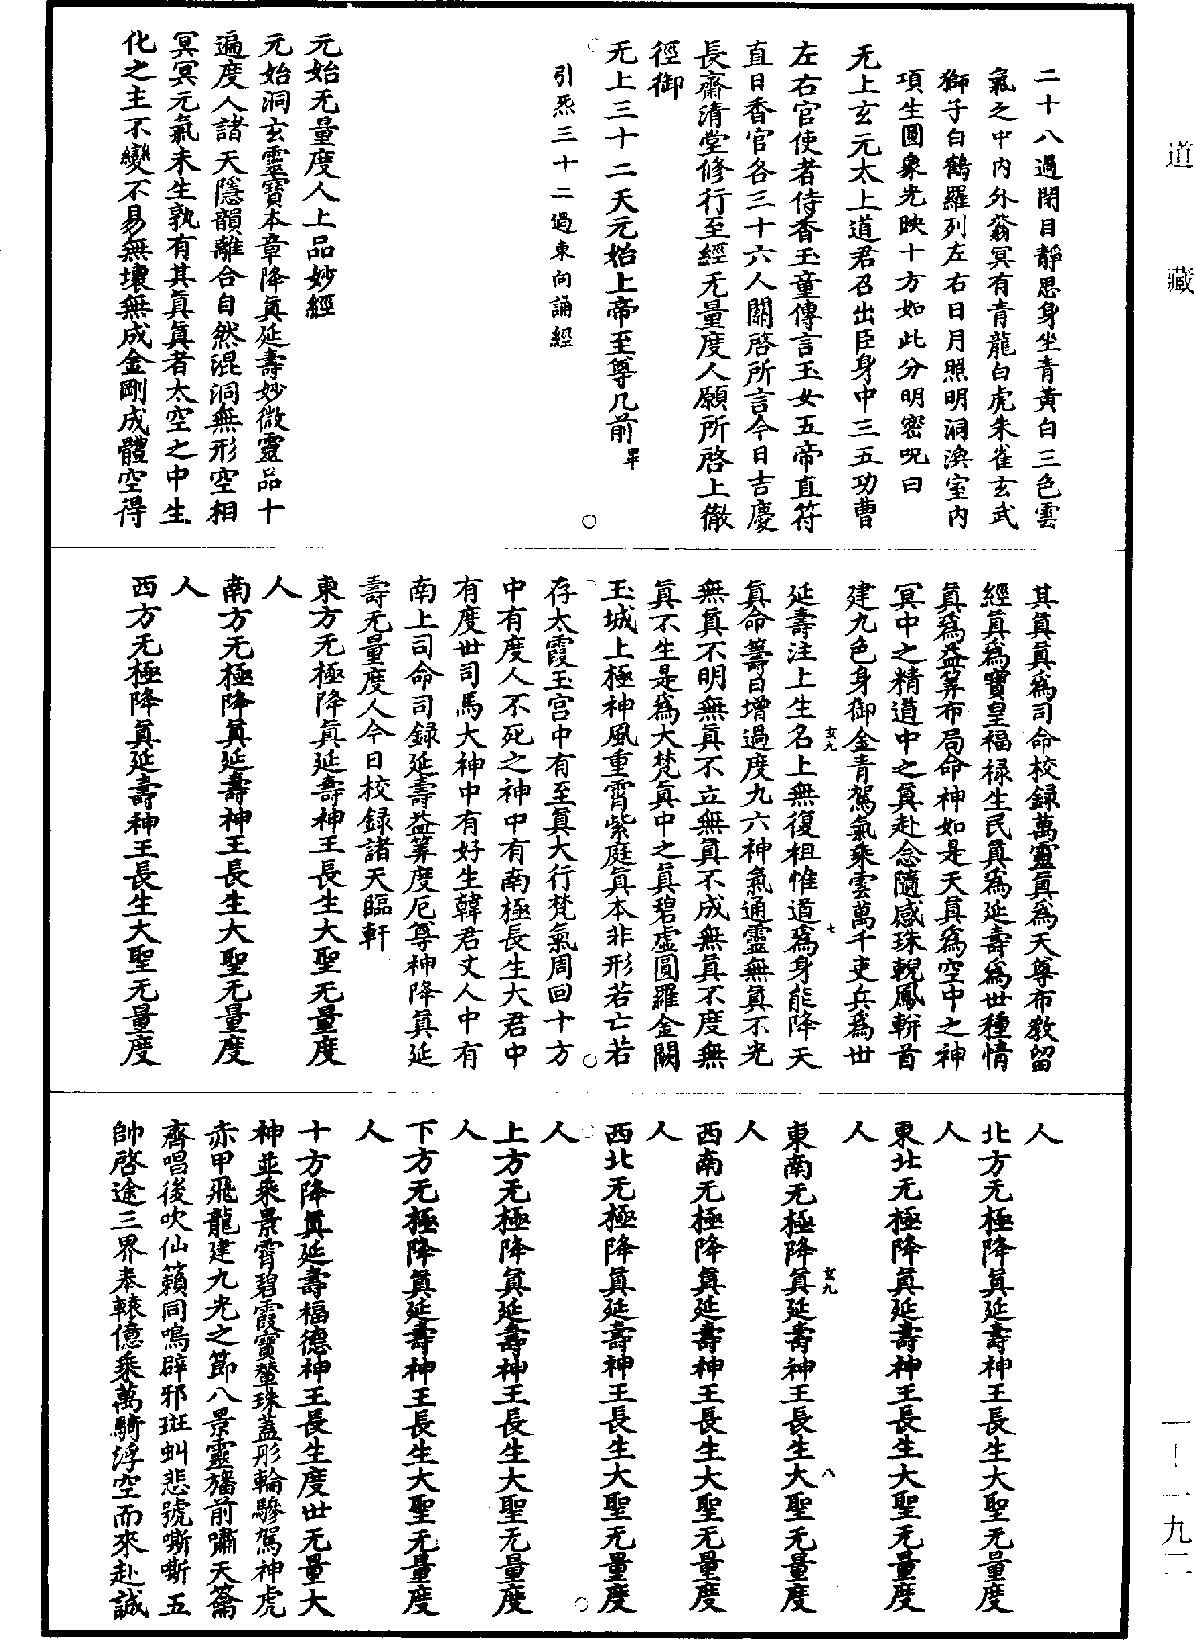 道藏
二十八過閉目靜思身坐青黃白三色雲
氣之中內外蓊冥有青龍白虎朱雀玄武
獅子白鶴羅列左右日月照明洞渙室內
項生圓象光映十方如此分明密呪曰
无上玄元太上道君召出臣身中三五功曹
左右官使者侍香玉童傳言玉女五帝直符
直日香官各三十六人關啓所言今日吉慶
長齋清堂修行至經无量度人願所啓上徹
徑御
无上三十二天元始上帝至尊几前畢
引炁三十二過東向誦經
元始无量度人上品妙經
元始洞玄靈寶本章降眞延壽妙微靈品十
遍度人諸天隱韻離合自然混洞無形空相
冥冥元氣未生孰有其眞眞者太空之中生
化之主不變不易無壞無成金剛成體空得
其眞眞爲司命校録萬靈眞爲天尊布教留
經眞爲寶皇福禄生民眞爲延壽爲世種情
眞爲益筭布局命神如是天眞爲空中之神
冥中之精道中之眞赴念隨感珠輗鳳軿首
建九色身御金青駕氣乘雲萬千吏兵爲世
玄九
七
延壽注上生名上無復祖惟道爲身能降天
眞命籌日增過度九六神氣通靈無眞不光
無眞不明無眞不立無眞不成無眞不度無
眞不生是爲大梵眞中之眞碧虛圓羅金闕
玉城上極神風重霄紫庭眞本非形若亡若
存太霞玉宮中有至眞大行梵氣周回十方
中有度人不死之神中有南極長生大君中
有度世司馬大神中有好生韓君丈人中有
南上司命司録延壽益筭度厄尊神降眞延
壽无量度人今日校録諸天臨軒
東方无極降眞延壽神王長生大聖无量度
人
南方无極降眞延壽神王長生大聖无量度
人
西方无極降眞延壽神王長生大聖无量度
人
北方无極降眞延壽神王長生大聖无量度
人
東北无極降眞延壽神王長生大聖无量度
人
玄九
八
東南无極降眞延壽神王長生大聖无量度
人
西南无極降眞延壽神王長生大聖无量度
人
西北无極降眞延壽神王長生大聖无量度
人
上方无極降眞延壽神王長生大聖无量度
人
下方无極降眞延壽神王長生大聖无量度
人
十方降眞延壽福德神王長生度世无量大
神並乘景霄碧霞寶輦珠蓋彤輪驂駕神虎
赤甲飛龍建九光之節八景靈旛前嘯天籥
齊唱後吹仙籟同鳴辟邪斑虯悲號嘶嘶五
帥啓途三界奉轅億乘萬騎浮空而來赴誠
一-一九二